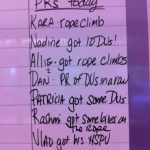 PRs today
KARA rope climb
Nadine got 10 DUs!
Allie got rope climbs
DAN PR of DUs in a row
PATRICIA got some DUs
Rashmi got some lives on
the rope
VLAD got his HSPU